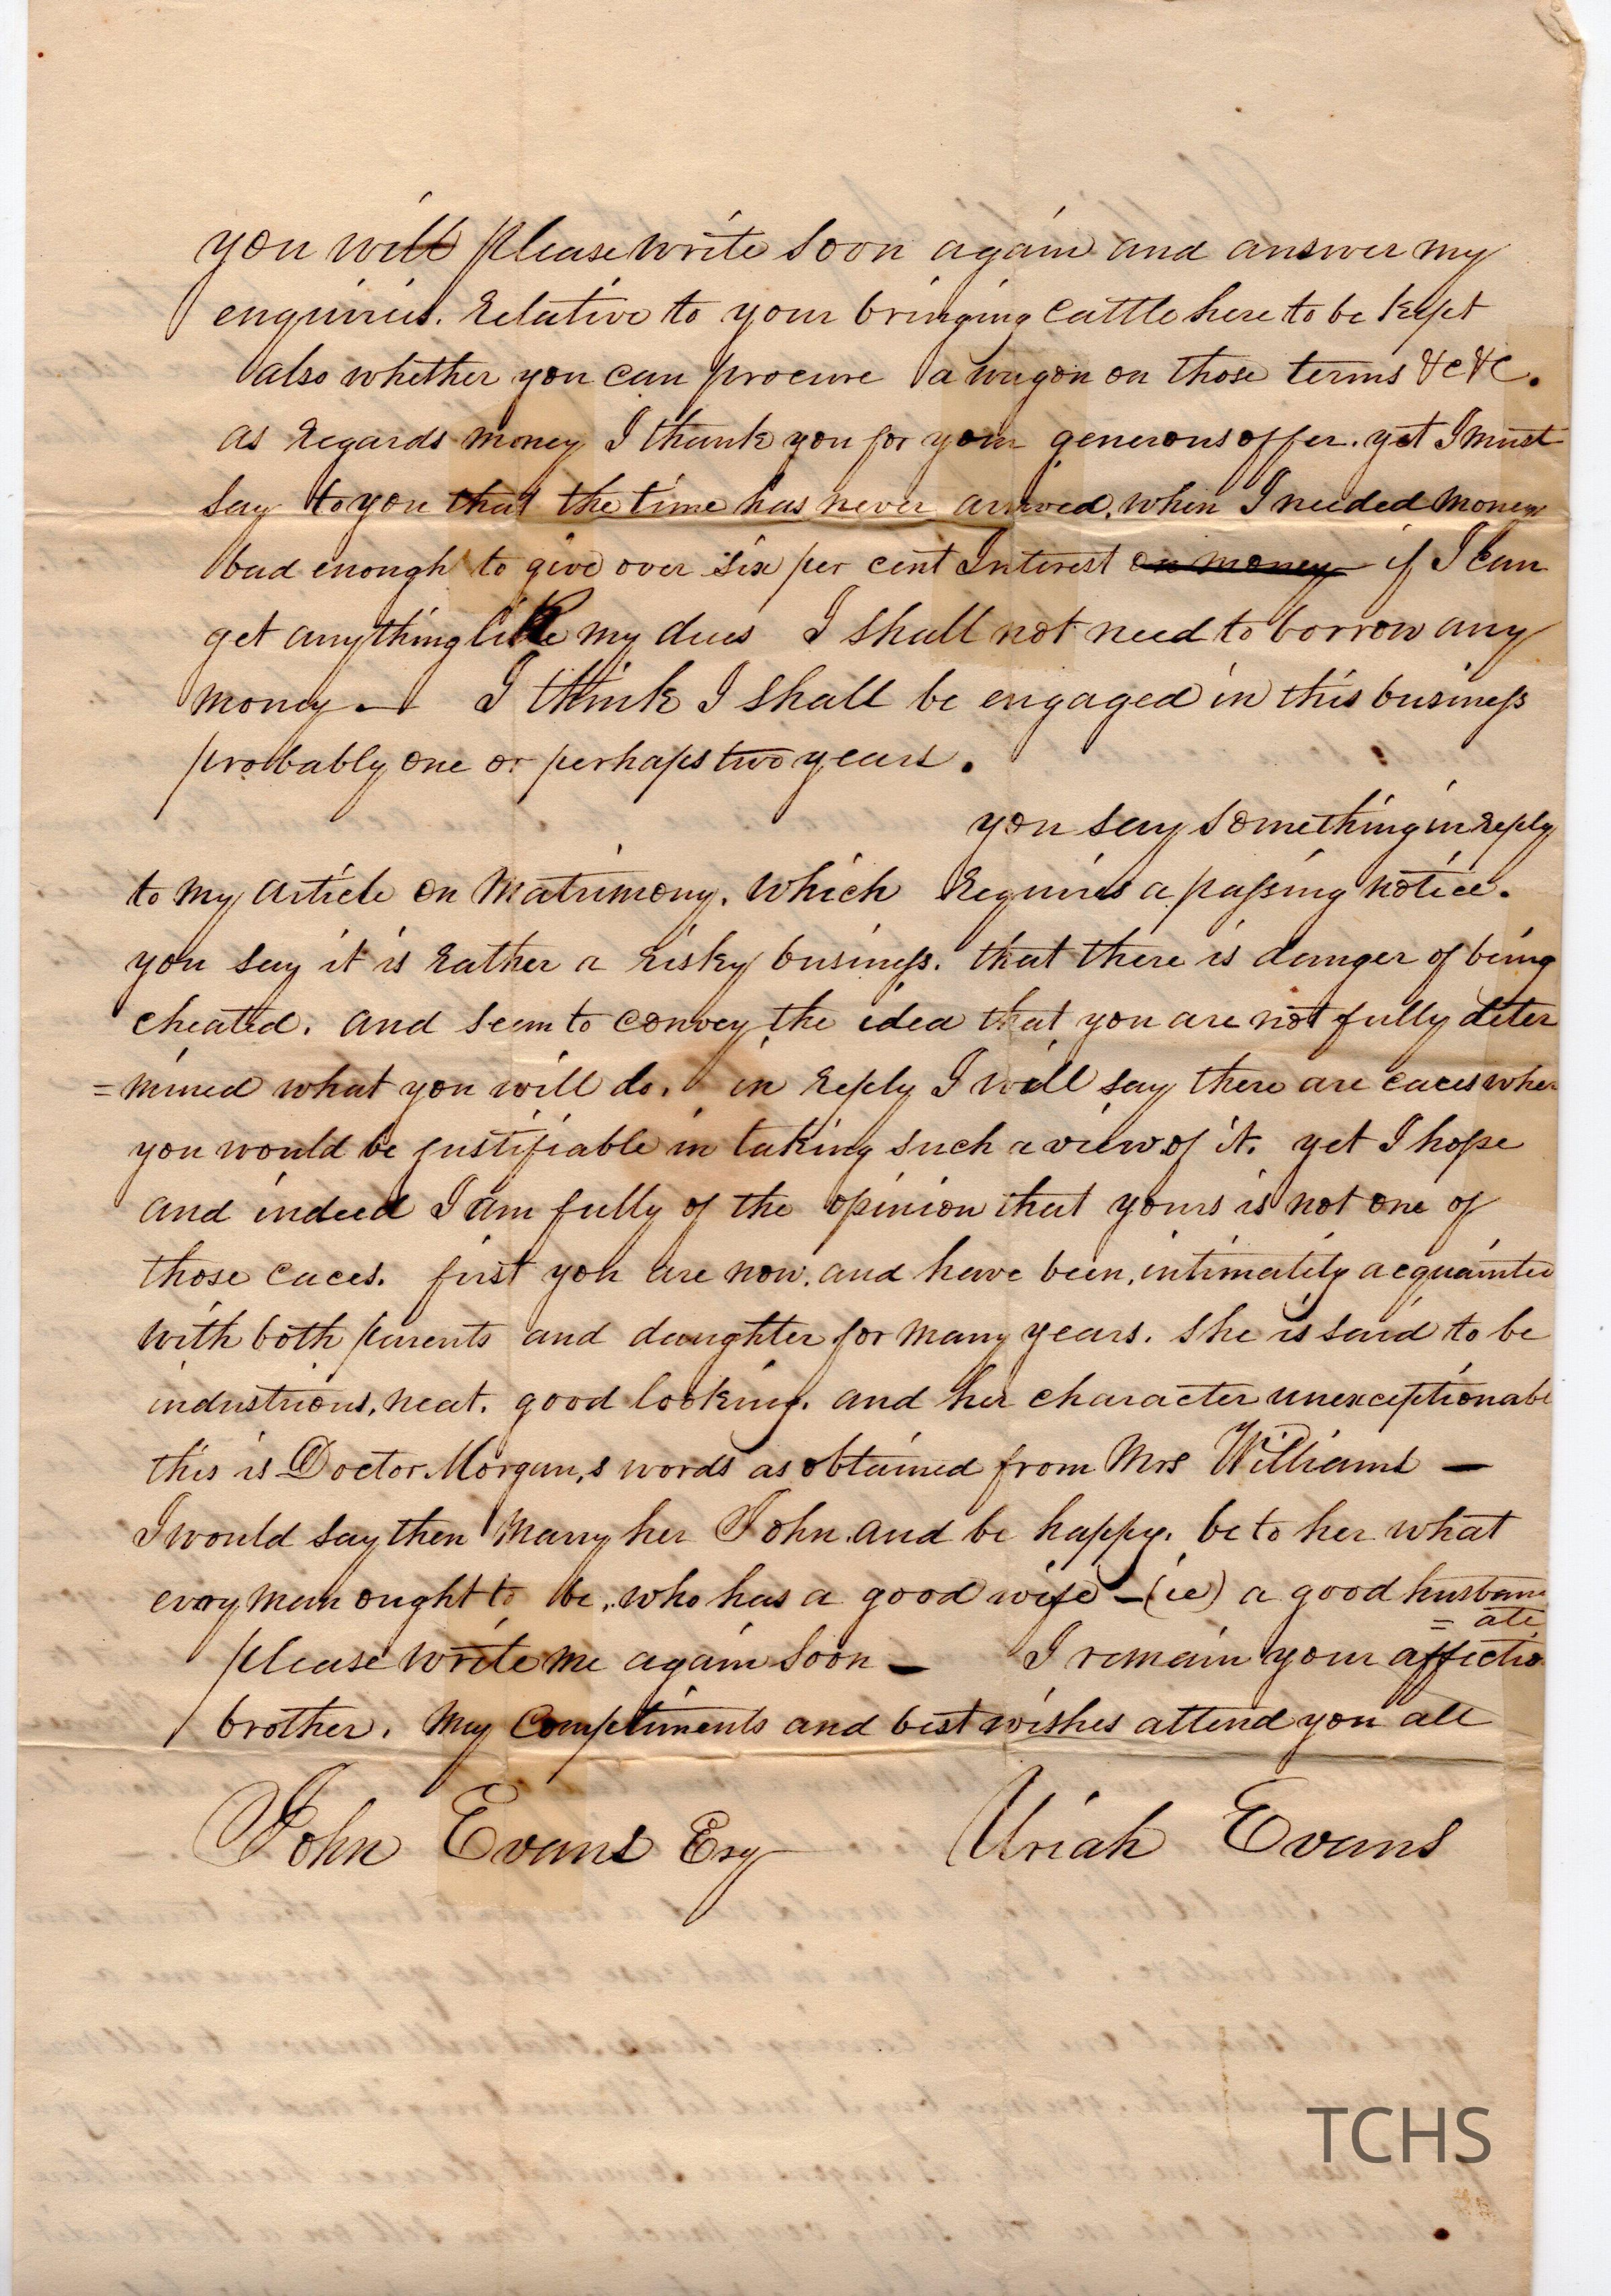 you will please write soon again and answer my
enquiries. relative to your bringing cattle here to be kept
also whether you can procure a wagon on those terms &c &c.
as regards money I thank you for your generous offer. yet I must
say to you that the time has never arrived, when I needed money
bad enough to give over six per cent Interest on money if I can
get anything like my dues I shall not need to borrow any
money — I think I shall be engaged in this business
probably one or perhaps two years.
you say something in reply
to my article on matrimony. which requires a passing notice.
you say it is rather a risky business. that there is danger of being
cheated. and seem to convey the idea that you are not fully deter
=mined what you will do. in reply I will say there are caces wher
you would be justifiable in taking such a view of it. yet I hope
and indeed I am fully of the opinion that yours is not one of
those caces. first you are now, and have been, intimately acquainted
with both parents and daughter for many years. she is said to be
industrious, neat. good looking. and her character unexceptionabl
this is Doctor Morgan,s words as obtained from Mrs Williams —
I would say then marry her John. and be happy. be to her what
evry man ought to be, who has a good wife — (ie) a good husban
= ate
please write me again soon — I remain your affectio
brother. my compliments and best wishes attend you all
John Evans Esq Uriah Evans
TCHS